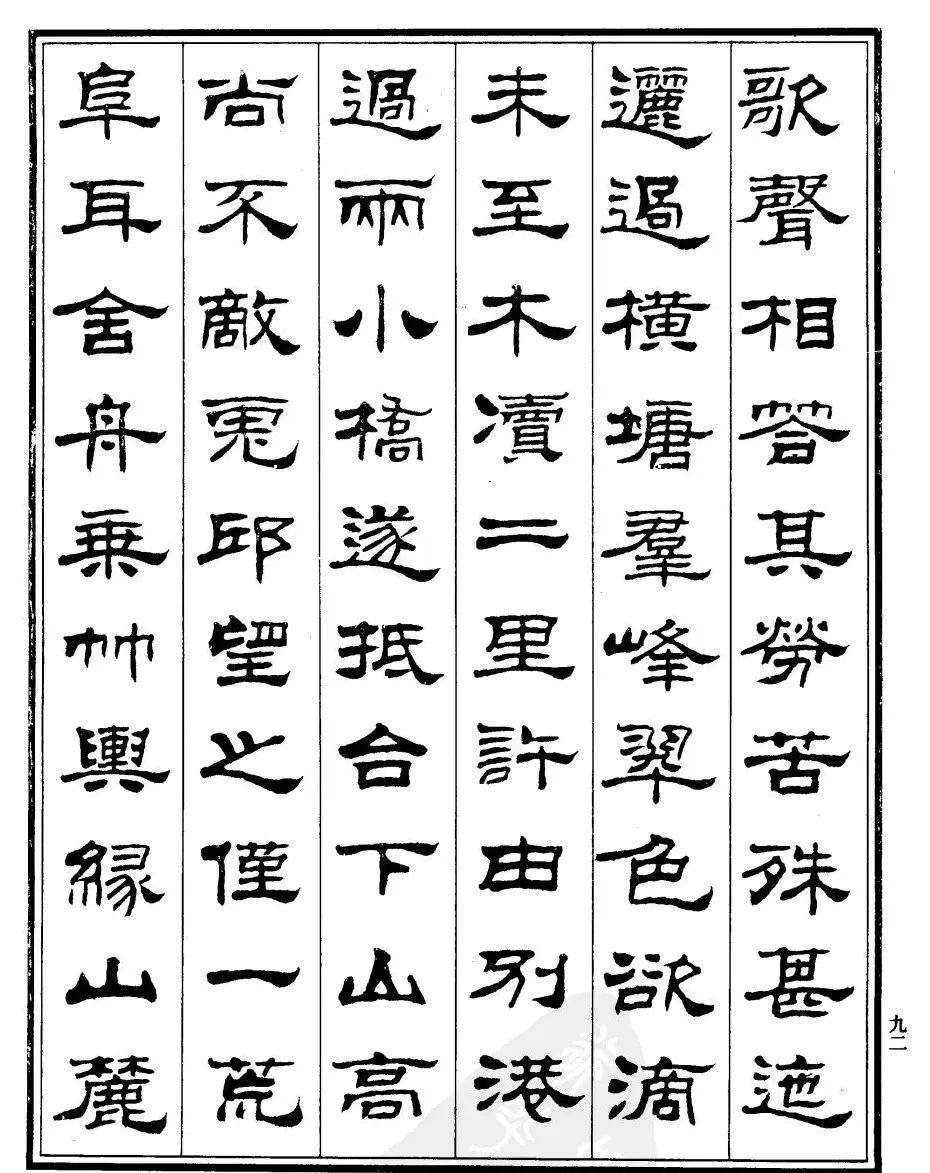 歌聲相荅其勞苦殊甚迤
邐過橫塘羣峰翠色欲滴
未至木瀆二里許由別港
過兩小橋遂抵台下山高
尚不敵兎邱望之僅一荒
阜耳舍舟乗竹輿緣山麓
九二